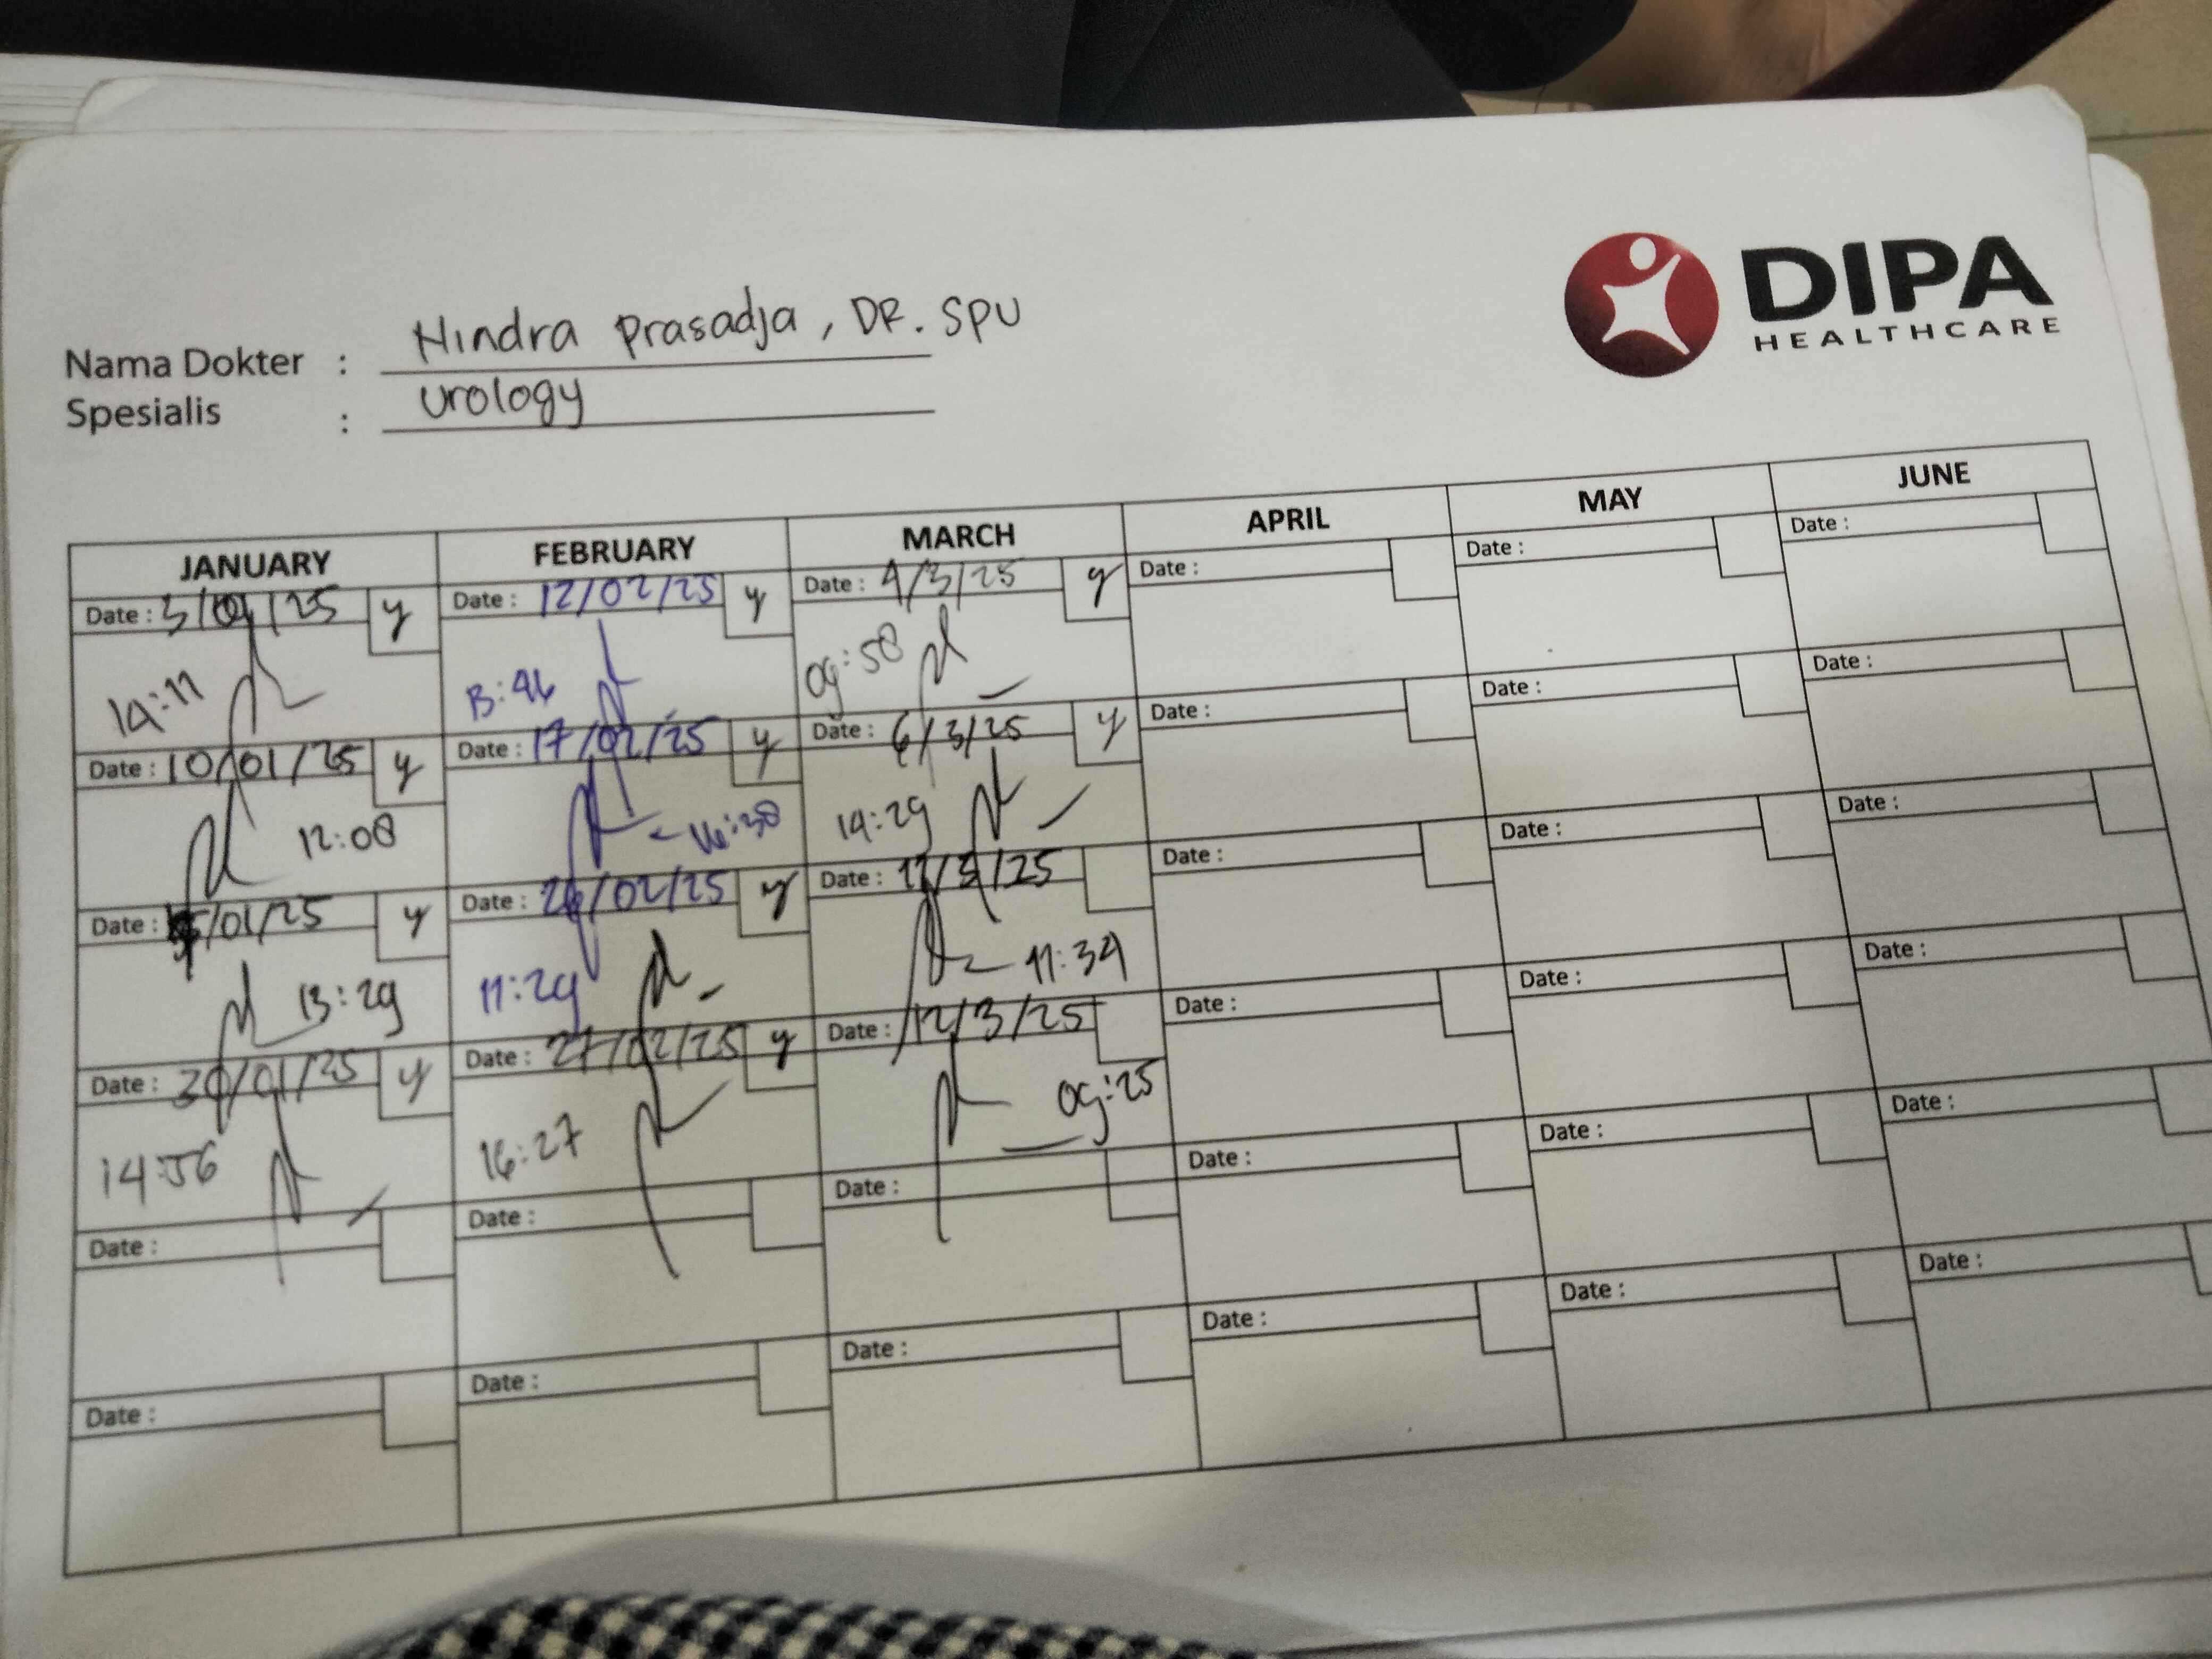 DIPA
HEALTHCARE
Nama Dokter : Hindra Prasadja, DR. SPU
Spesialis : Urology
JANUARY FEBRUARY MARCH APRIL MAY JUNE
Date : 3/01/25 y Date : 12/02/25 y Date : 4/3/25 y Date : Date : Date :
14:11 13:46 09:58
Date : 10/01/25 y Date : 17/02/25 y Date : 6/3/25 y Date : Date : Date :
12:08 16:38 14:29
Date : /01/25 y Date : 26/02/25 y Date : 11/3/25 Date : Date : Date :
13:29 11:29 11:34
Date : 30/01/25 y Date : 27/02/25 y Date : 12/3/25 Date : Date : Date :
14:56 16:27 09:25
Date : Date : Date : Date : Date : Date :
Date : Date : Date : Date : Date : Date :